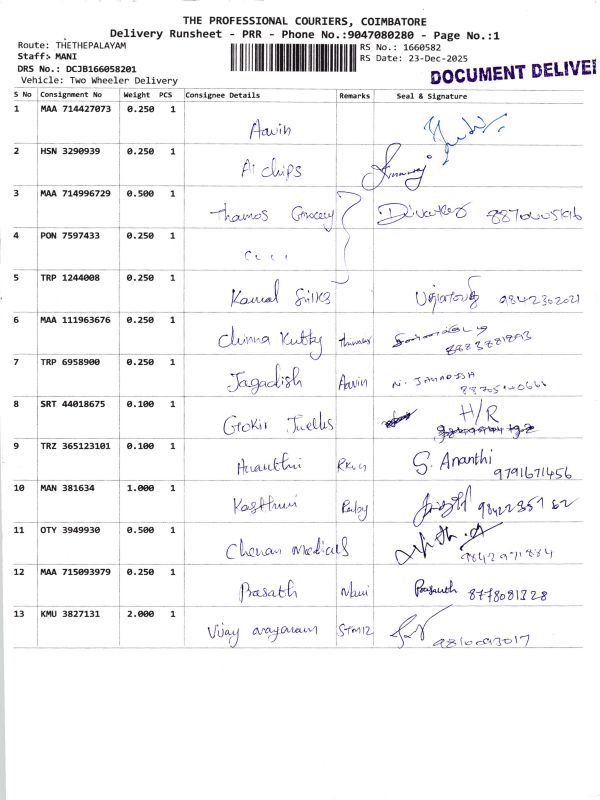 THE PROFESSIONAL COURIERS, COIMBATORE
Delivery Runsheet - PRR - Phone No.:9047080280 - Page No.:1
Route: THETHEPALAYAM
Staff: MANI
DRS No.: DCJB166058201
Vehicle: Two Wheeler Delivery
RS No.: 1660582
RS Date: 23-Dec-2025
DOCUMENT DELIVE
S No Consignment No Weight PCS Consignee Details Remarks Seal & Signature
1 MAA 714427073 0.250 1
Aavin
2 HSN 3290939 0.250 1
A1 chips
3 MAA 714996729 0.500 1
Thamos Grocery
4 PON 7597433 0.250 1
5 TRP 1244008 0.250 1
Kamal Silks 9842302021
6 MAA 111963676 0.250 1
Chinna Kutty
7 TRP 6958900 0.250 1
Jagadish Aavin
8 SRT 44018675 0.100 1
H/R
9 TRZ 365123101 0.100 1
Ananthi S. Ananthi
9791671456
10 MAN 381634 1.000 1
11 OTY 3949930 0.500 1
Chenan Medicals
12 MAA 715093979 0.250 1
Prasath Mani Prasanth 8778081328
13 KMU 3827131 2.000 1
Vijay